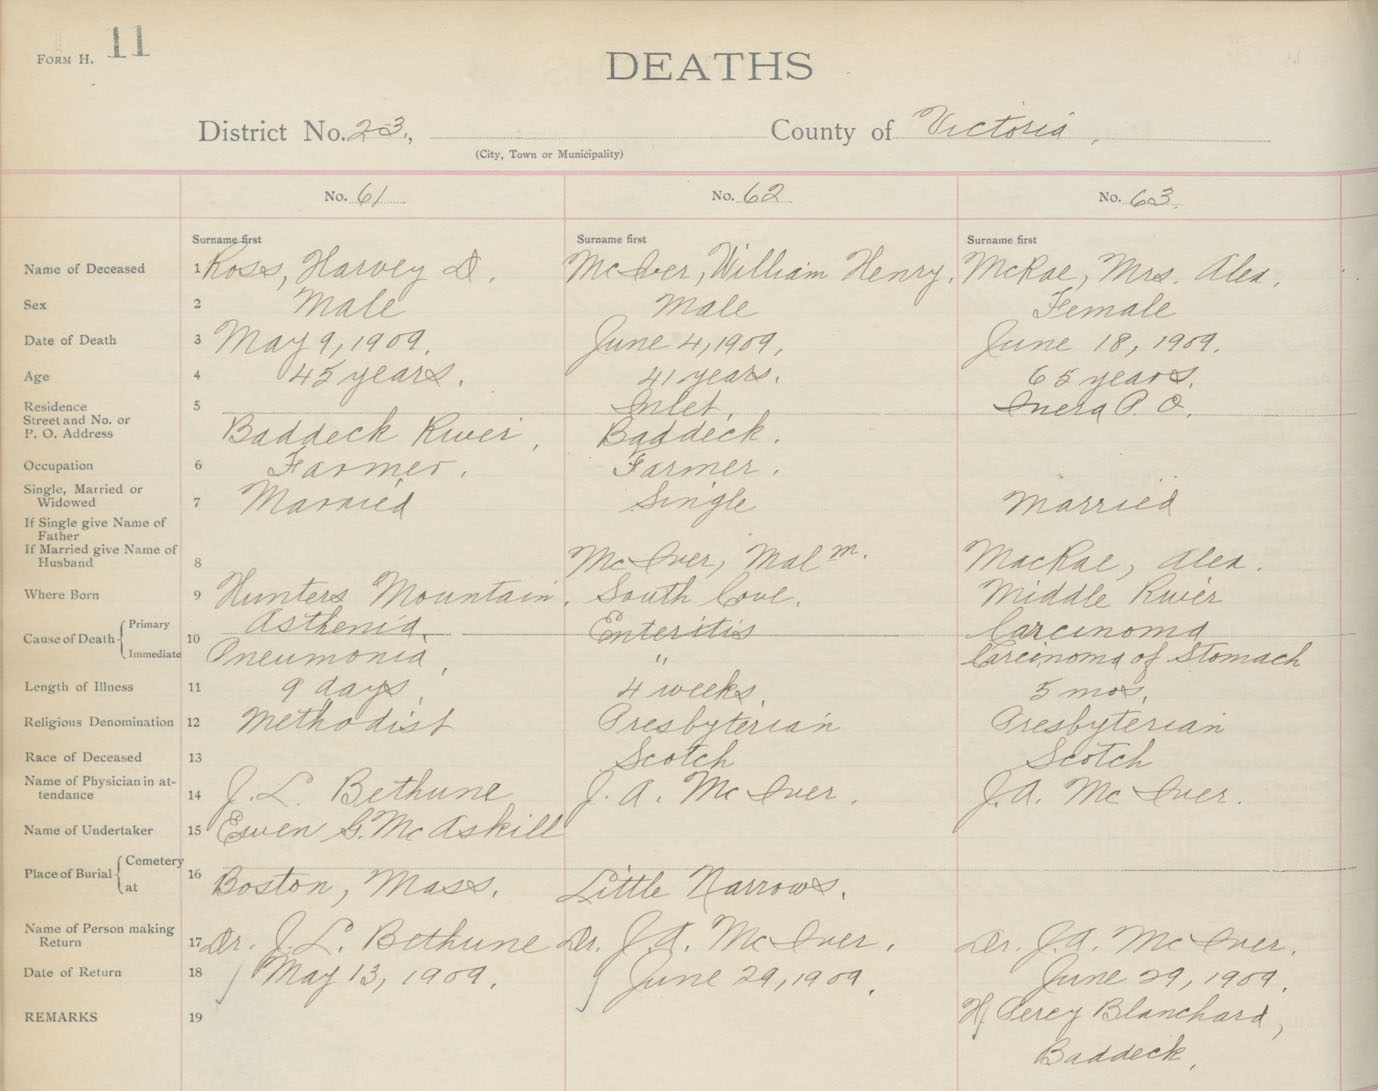 FORM H. 11
DEATHS
District No. 23, County of Victoria,
(City, Town or Municipality)
No. 61 No. 62 No. 63
Surname first Surname first Surname first
Name of Deceased 1 Ross, Harvey D. McIver, William Henry. McRae, Mrs. Alex.
Sex 2 Male Male Female
Date of Death 3 May 9, 1909. June 4, 1909. June 18, 1909.
Age 4 45 years. 41 years. 65 years.
Residence 5 Inlet, P. O.
Street and No. or
P. O. Address Baddeck River, Baddeck.
Occupation 6 Farmer. Farmer.
Single, Married or
Widowed 7 Married Single Married
If Single give Name of
Father
If Married give Name of
Husband 8 McIver, Malm. MacRae, Alex.
Where Born 9 Hunters Mountain. South Cove. Middle River
Cause of Death Primary 10 Asthenia, Enteritis Carcinoma
Immediate Pneumonia, " Carcinoma of Stomach
Length of Illness 11 9 days, 4 weeks, 5 mos.
Religious Denomination 12 Methodist Presbyterian Presbyterian
Race of Deceased 13 Scotch Scotch
Name of Physician in at-
tendance 14 J. L. Bethune J. A. McIver. J. A. McIver.
Name of Undertaker 15 Ewen G. McAskill
Place of Burial Cemetery 16
at Boston, Mass. Little Narrows.
Name of Person making
Return 17 Dr. J. L. Bethune Dr. J. A. McIver. Dr. J. A. McIver.
Date of Return 18 May 13, 1909. June 29, 1909. June 29, 1909.
REMARKS 19 H Percy Blanchard,
Baddeck.